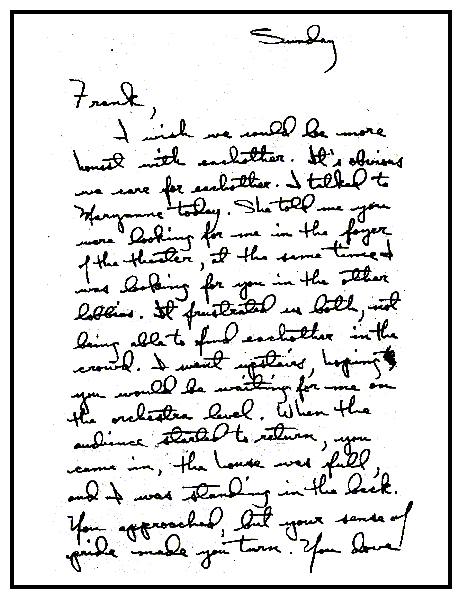 Sunday
Frank,
I wish we could be more
honest with eachother. It's obvious
we care for eachother. I talked to
Maryanne today. She told me you
were looking for me in the foyer
of the theater, at the same time I
was looking for you in the other
lobbies. It frustrated us both, not
being able to find eachother in the
crowd. I went upstairs, hoping
you would be waiting for me on
the orchestra level. When the
audience started to return, you
came in, the house was full,
and I was standing in the back.
You approached, but your sense of
pride made you turn. You